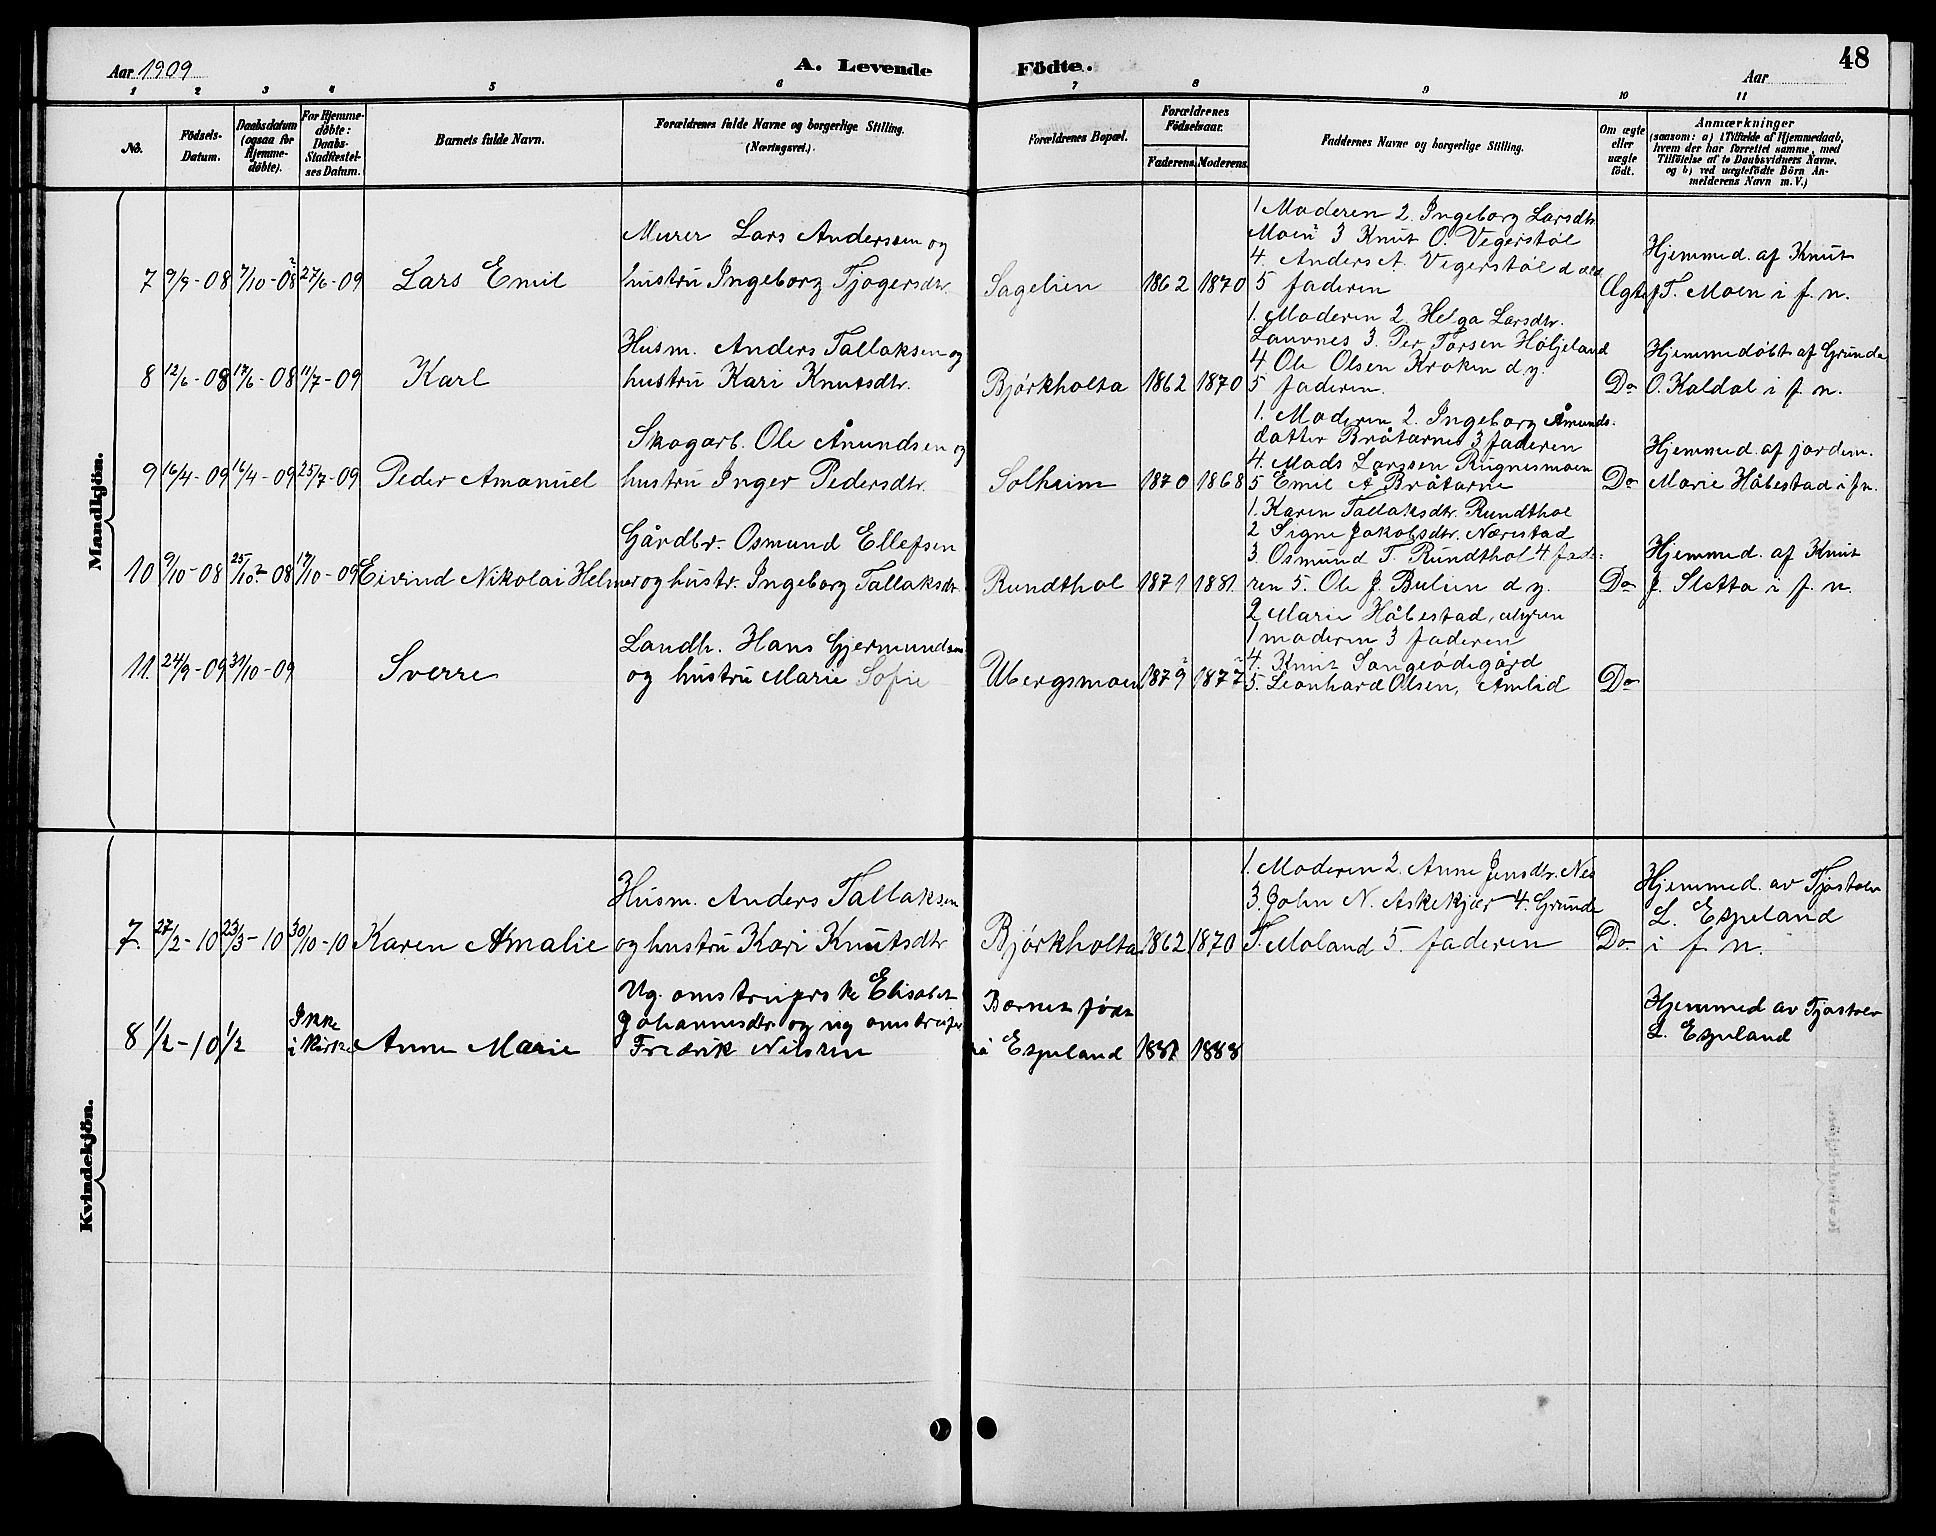 Aar 1909
A. Levende Födte.
Aar
48
1 2 3 4 5 6 7 8 9 10 11
No.
Födsels-Datum.
Daabsdatum (ogsaa for Hjemme-døbte).
For Hjemme-døbte: Daabs-Stadfæstel-ses Datum.
Barnets fulde Navn.
Forældrenes fulde Navne og borgerlige Stilling. (Næringsvei.)
Forældrenes Bopæl.
Forældrenes Födselsaar.
Faderens. Moderens.
Faddernes Navne og borgerlige Stilling.
Om ægte eller uægte födt.
Anmærkninger
(saasom: a) i Tilfælde af Hjemmedaab,
hvem der har forrettet samme, med
Tilföielse af to Daabsvidners Navne.
og b) ved uægtefödte Börn An-
melderens Navn m. V.)
Mandkjön.
7 9/9-08 7/10-08 27/6-09 Lars Emil
Murer Lars Anderssen og
hustru Ingeborg Tjøgersdtr.
Sagelien 1862 1870
1 Moderen 2. Ingeborg Larsdtr
Moen 3 Knut O. Vegerstøl
4. Anders A. Vegerstøl d æld
5 faderen
Ægte
Hjemmed. af Knut
T. Moen i f. n.
8 12/6-08 17/6-08 11/7-09 Karl
Husm. Anders Tallaksen og
hustru Kari Knutsdtr.
Bjørkholta 1862 1870
1. Moderen 2. Helga Larsdtr.
Lauvnes 3. Per Torsen Høljeland
4 Ole Olsen Kroken d y.
5 faderen.
Do
Hjemmedøbt af Grunde
O. Kaldal i f. n.
9 16/4-09 16/4-09 25/7-09 Peder Amanuel
Skogarb. Ole Ånundsen og
hustru Inger Pedersdtr.
Solheim 1870 1868
1. Moderen 2. Ingeborg Åmunds-
datter Bråtarne 3 faderen
4. Mads Larssen Rugnesmoen
5 Emil A Bråtarne
Do
Hjemmed. af jordem.
Marie Håbestad i f n.
10 9/10-08 25/10-08 17/10-09 Eivind Nikolai Helmer
Gårdbr. Osmund Ellefsen
og hustr. Ingeborg Tallaksdtr.
Rundthol 1871 1881
1. Karen Tallaksdtr. Rundthol
2 Signe Jakobsdtr. Nærestad
3 Osmund T. Rundthol 4 fade-
ren 5. Ole J. Bulien d y.
Do
Hjemmed. af Knut
J. Sletta i f. n.
11. 24/9-09 31/10-09 Sverre
Landh. Hans Gjermundsen
og hustru Marie Sofie
Ubergsmoen 1879 1877
2 Marie Håbestad, Myren
1 moderen 3 faderen
4. Knut Songeødegård
5. Leonhard Olsen, Åmlid
Do
Kvindekjön.
7. 27/2-10 23/3-10 30/10-10 Karen Amalie
Husm. Anders Tallaksen
og hustru Kari Knutsdtr
Bjørkholta 1862 1870
1. Moderen 2. Anne Jensdtr. Nes
3. John N. Askekjær 4. Grunde
T. Moland 5. faderen
Do
Hjemmed. av Tjøstolv
L. Espeland
i f n.
8 1/2-10 1/2 Ikke i kirke Anne Marie
Ug. omstreiferske Elisabet
Johannesdtr og ug omstreifer
Fredrik Nilssen
Barnet født
på Espeland 1881 1888
Hjemmed av Tjøstolv
L. Espeland